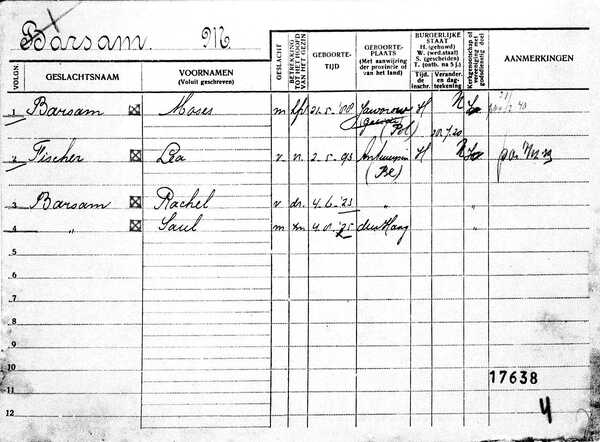 Barsam. M.
VOLGN. GESLACHTSNAAM VOORNAMEN (Voluit geschreven) GESLACHT BETREKKING TOT HET HOOFD VAN HET GEZIN GEBOORTE-TIJD GEBOORTE-PLAATS (Met aanwijzing der provincie of van het land) BURGERLIJKE STAAT H. (gehuwd) W. (wed.staat) S. (gescheiden) T. (ontb. na 5 j.) Tijd. de inschr. Verander. en dag-teekening Kerkgenootschap of vereeniging met godsdienstig doel AANMERKINGEN
1 Barsam Moses m Jaworow H
(Pol) 10.7.20
2 Fischer Lea v. 2.5.93 Antwerpen H
(Be)
3 Barsam Rachel v dr. 4.6.'23 "
4 " Saul m zn 4.9.'25 den Haag
5
6
7
8
9
10
11 17638
12 4